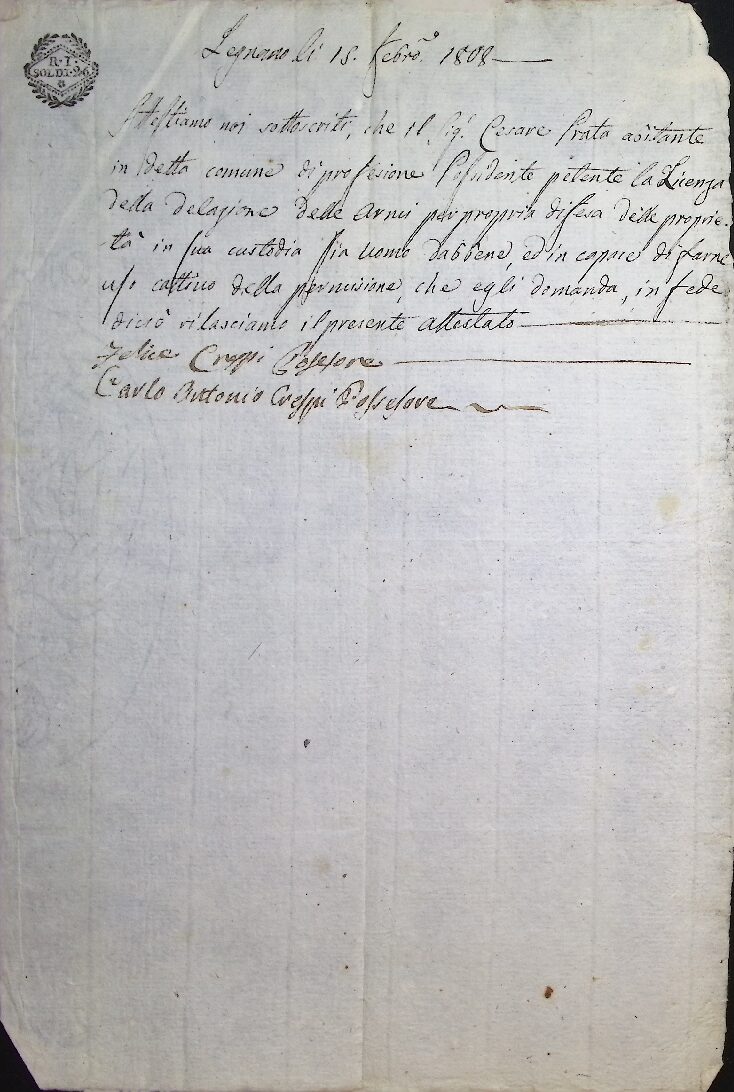 R·I
SOLDI·26
Legnano li 18. Febro. 1808
Attestiamo noi sottoscriti, che il Sigr. Cesare Prata abitante
in detta comune di profesione Posidente petente la Licenza
della delazione delle Armi per propria difesa delle proprie-
tà in sua custodia sia uomo dabbene, ed in capace di farne
uso cattivo della permisione, che egli domanda, in fede
di ciò rilasciamo il presente attestato
Felice Crespi Posesore
Carlo Antonio Crespi Possesore